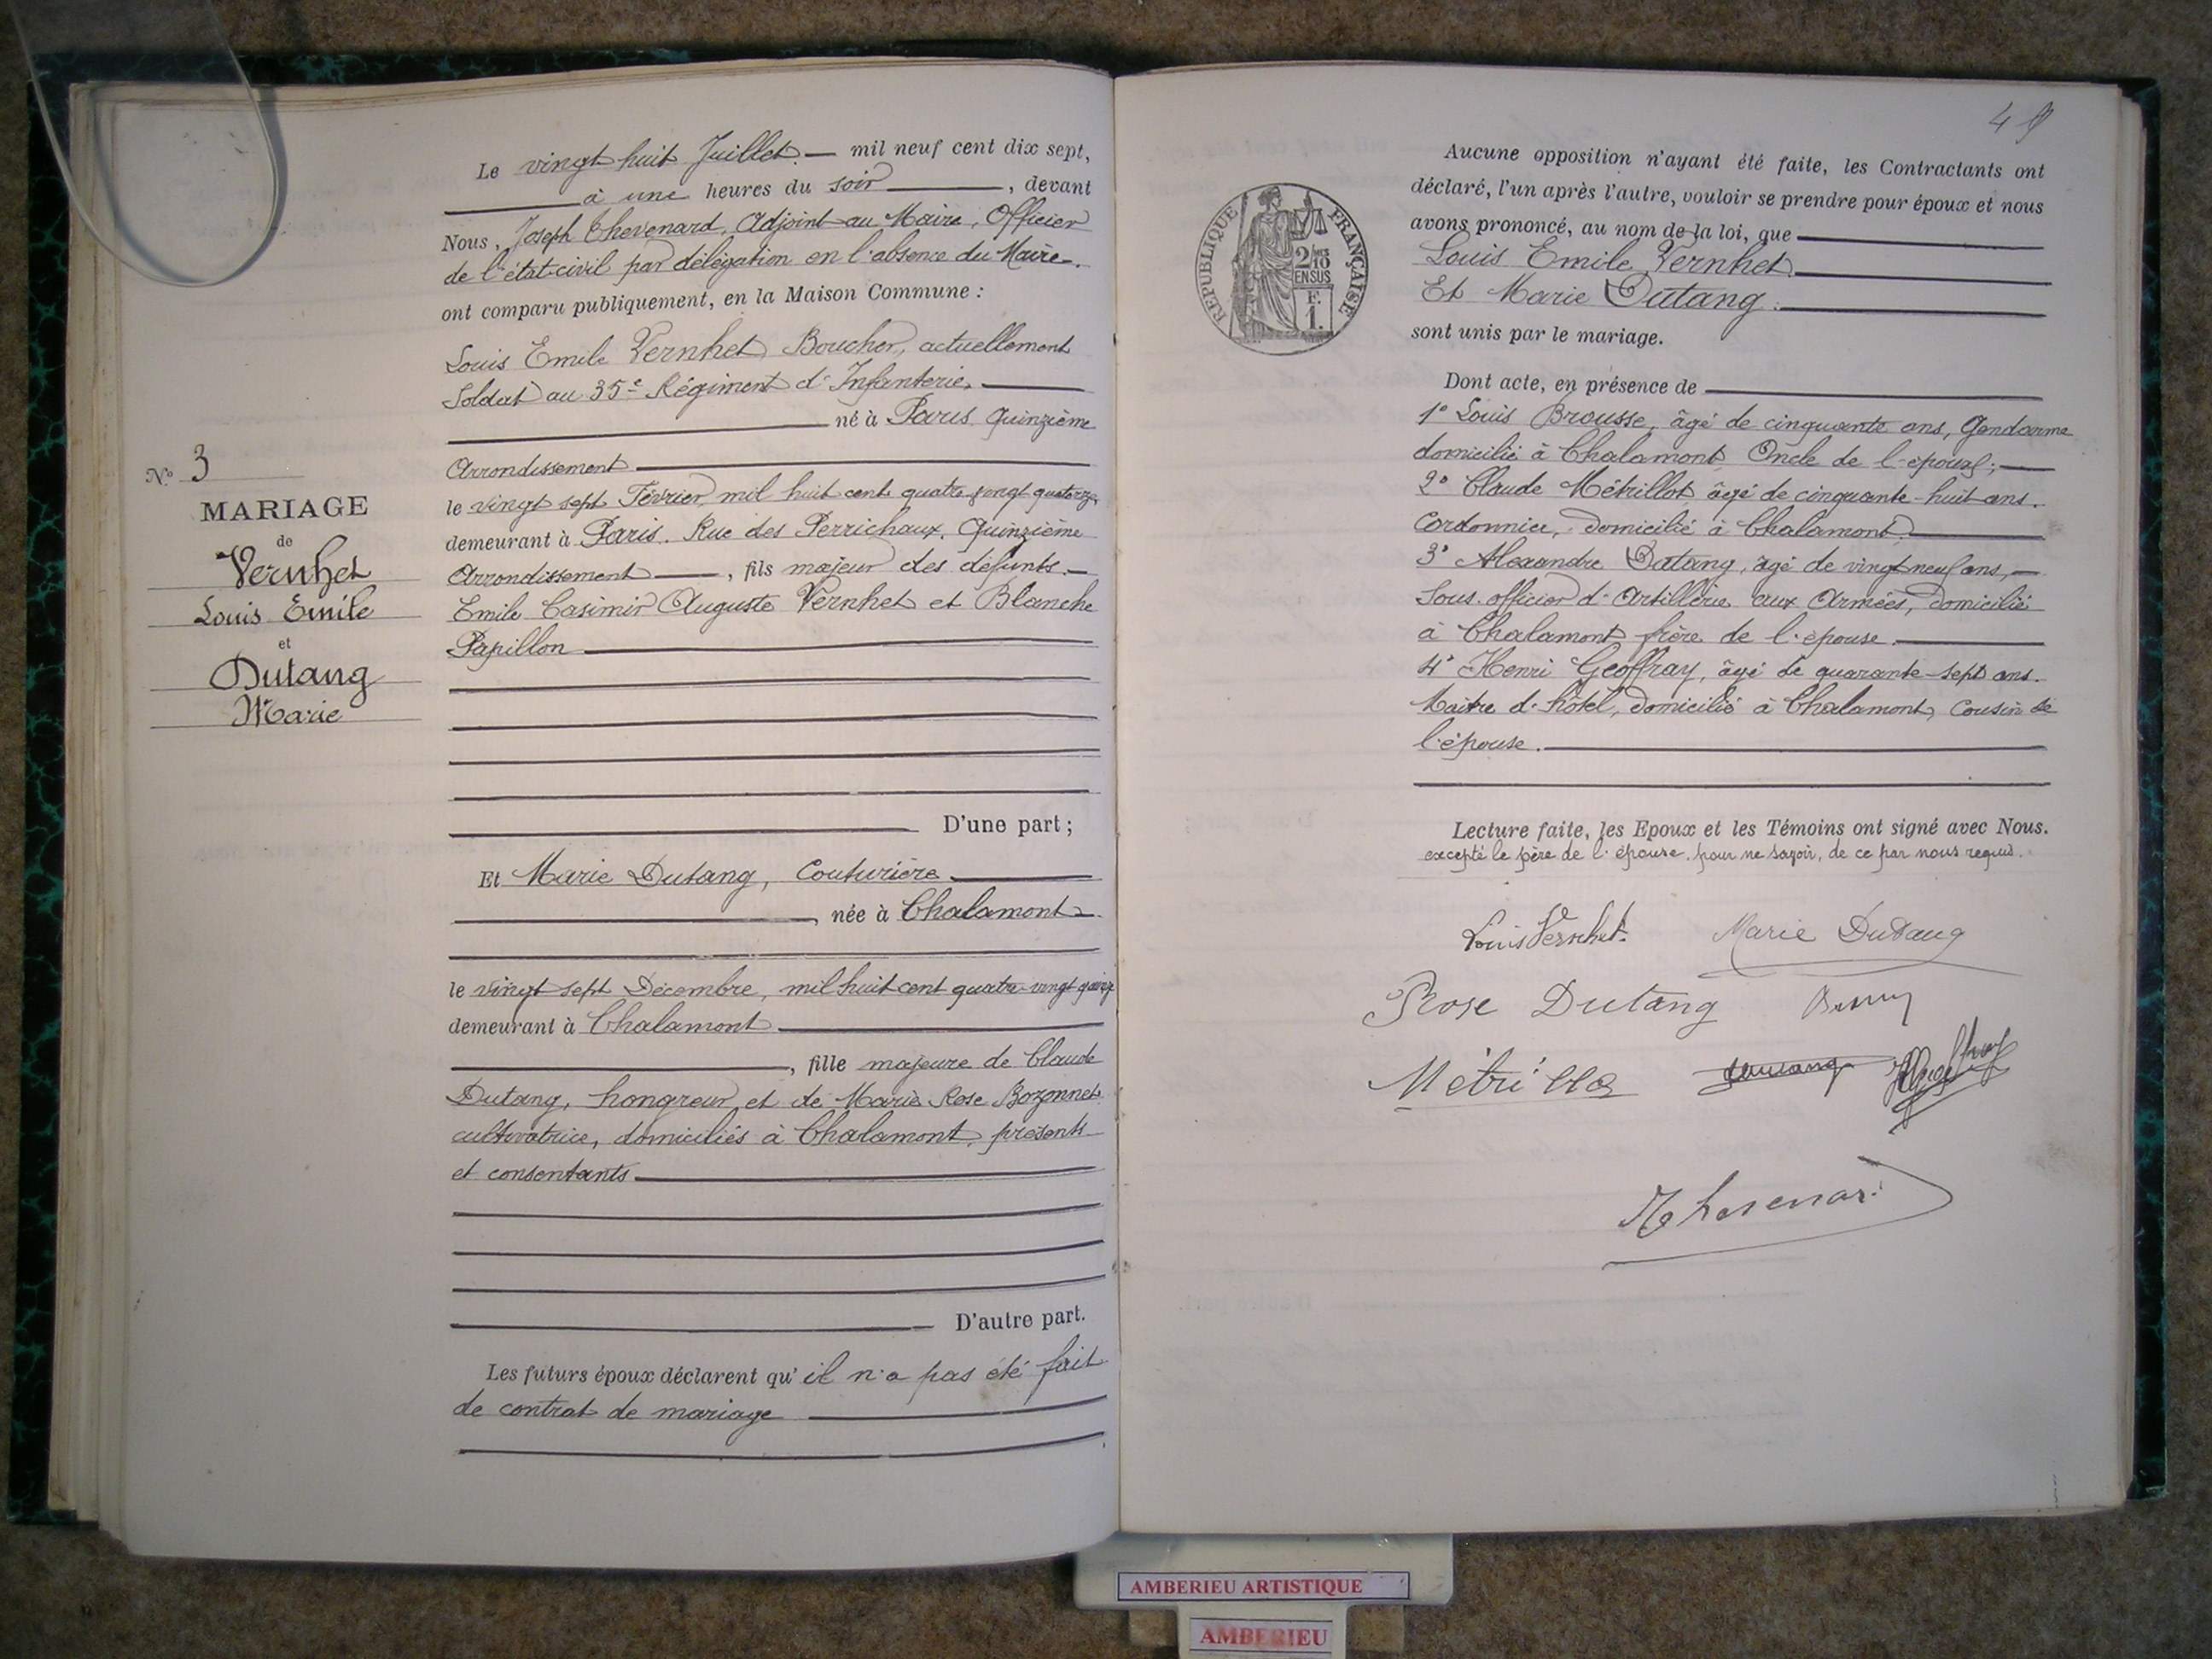 Le vingt huit Juillet — mil neuf cent dix sept,
à une heures du soir, devant
Nous, Joseph Thevenard, Adjoint au Maire, Officier
de l'état-civil par délégation en l'absence du Maire.
ont comparu publiquement, en la Maison Commune :
Louis Emile Vernhet Boucher, actuellement
Soldat au 35e Régiment d'Infanterie,
né à Paris Quinzième
Arrondissement
le vingt sept Février mil huit cent quatre vingt quatorze
demeurant à Paris. Rue des Perrichaux, Quinzième
Arrondissement, fils majeur des défunts
Emile Casimir Auguste Vernhet et Blanche
Papillon
D'une part ;
Nº 3
MARIAGE
de
Vernhet
Louis Emile
et
Dutang
Marie
Et Marie Dutang, Couturière
, née à Chalamont
le vingt sept Décembre, mil huit cent quatre-vingt quinze
demeurant à Chalamont
, fille majeure de Claude
Dutang, hongreur et de Marie Rose Bozonnet
cultivatrice, domiciliés à Chalamont, présents
et consentants
D'autre part.
Les futurs époux déclarent qu'il n'a pas été fait
de contrat de mariage
49
REPUBLIQUE FRANÇAISE
2/10
EN SUS
F.
1.
Aucune opposition n'ayant été faite, les Contractants ont
déclaré, l'un après l'autre, vouloir se prendre pour époux et nous
avons prononcé, au nom de la loi, que
Louis Emile Vernhet
Et Marie Dutang
sont unis par le mariage.
Dont acte, en présence de
1º Louis Brousse, âgé de cinquante ans, Gendarme
domicilié à Chalamont Oncle de l'époux ;
2º Claude Métrillot âgé de cinquante-huit ans.
Cordonnier, domicilié à Chalamont
3º Alexandre Dutang, âgé de vingt neuf ans,
Sous-officier d'Artillerie aux Armées, domicilié
à Chalamont frère de l'épouse.
4º Henri Geoffray, âgé de quarante-sept ans.
Maitre d'hôtel, domicilié à Chalamont, Cousin de
l'épouse.
Lecture faite, les Epoux et les Témoins ont signé avec Nous.
excepté le père de l'épouse, pour ne savoir, de ce par nous requis.
Louis Vernhet Marie Dutang
Rose Dutang
Métrillo Dutang
Thevenard
AMBERIEU ARTISTIQUE
AMBERIEU